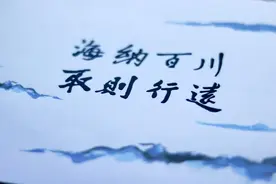 海纳百川
取则行遠